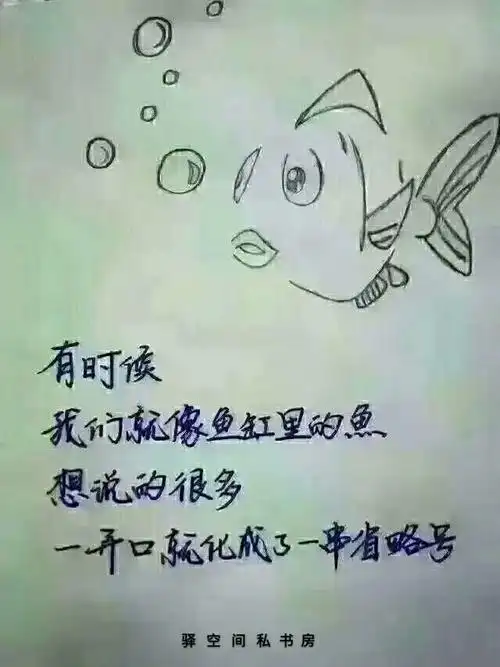 有时候
我们就像鱼缸里的魚
想说的很多
一开口就化成了一串省略号
驿空间私书房